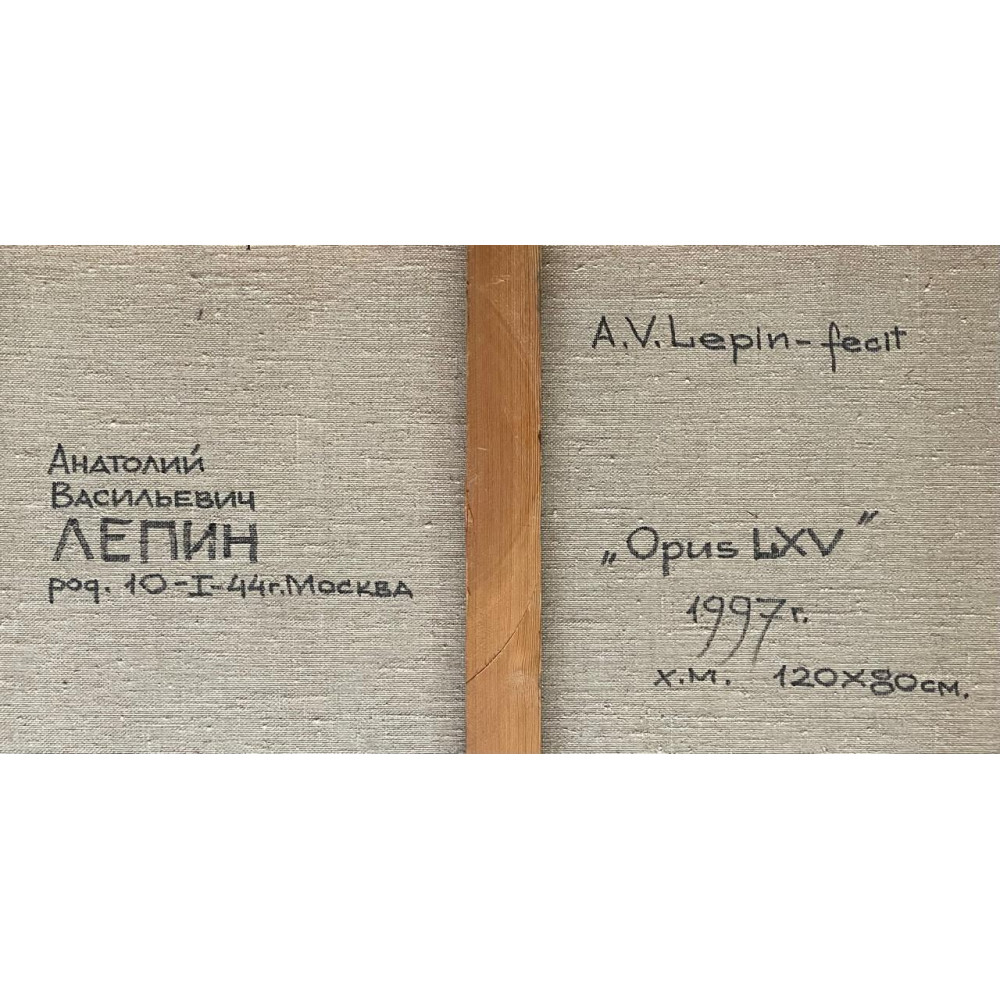 Анатолий
Васильевич
ЛЕПИН
род. 10-I-44г. Москва
A.V. Lepin - fecit
„Opus LXV”
1997 г.
х.м. 120х80 см.